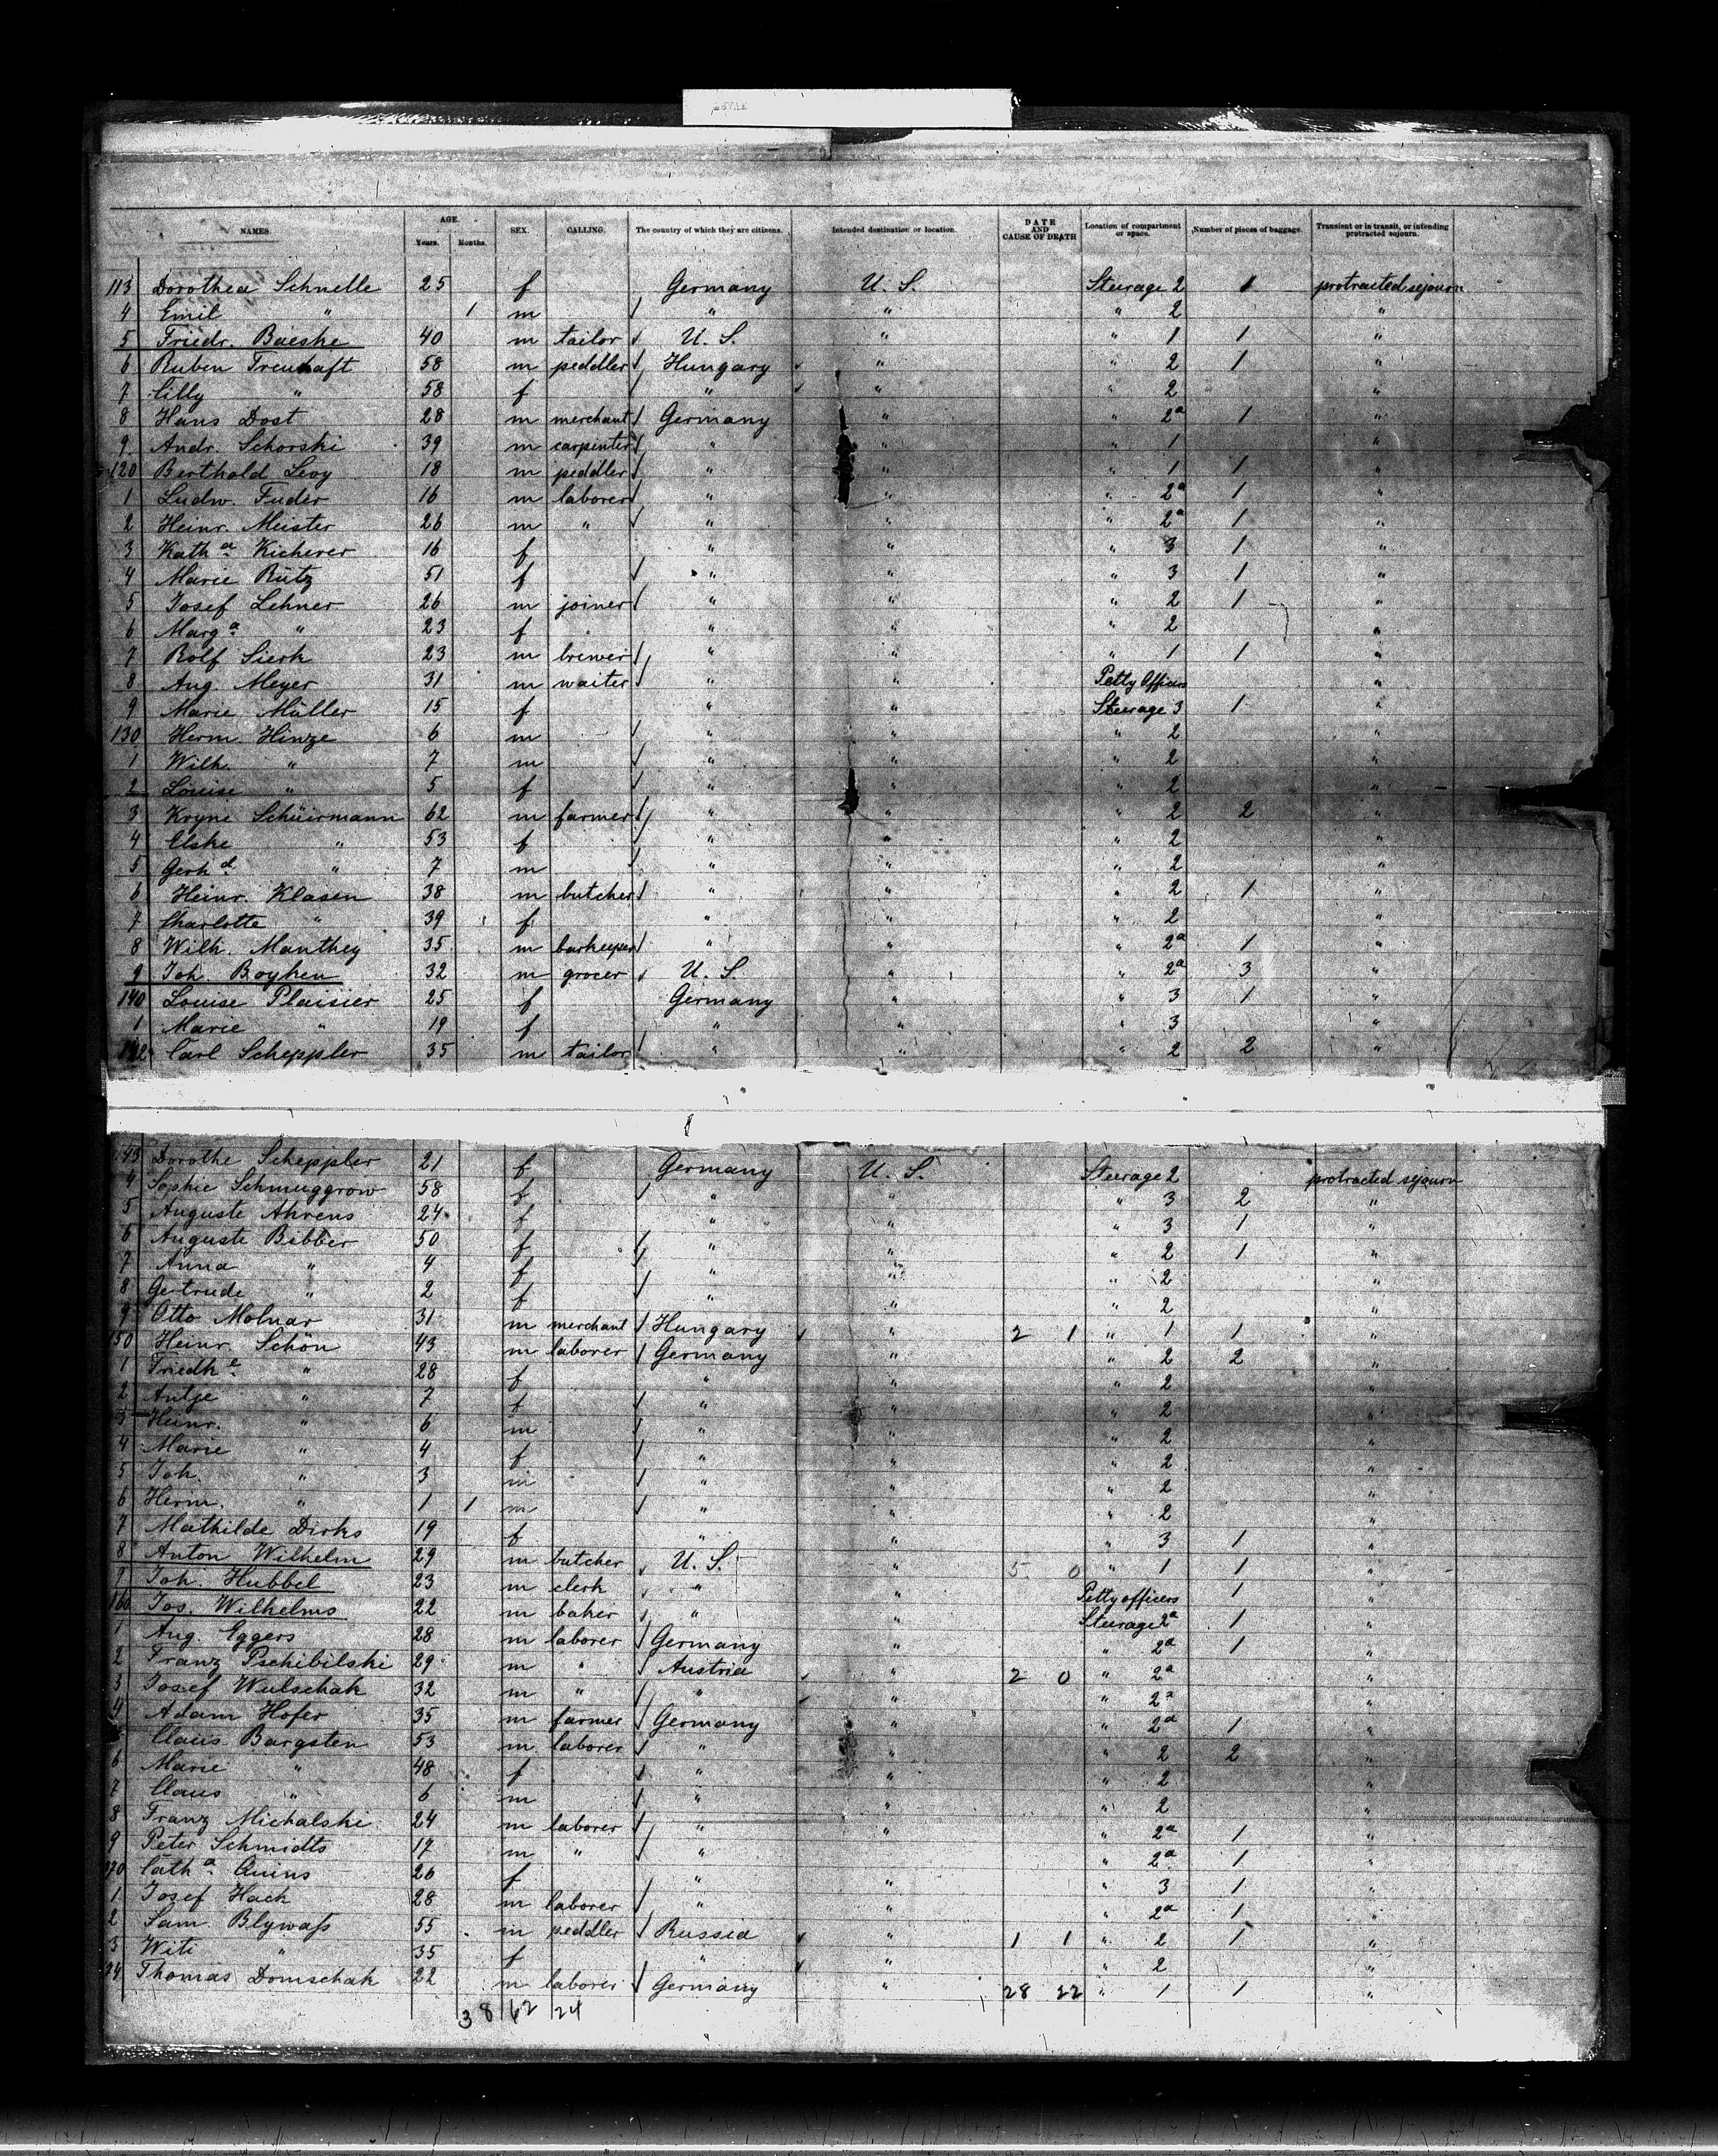 NAMES AGE. Years. Months. SEX. CALLING. The country of which they are citizens. Intended destination or location. DATE AND CAUSE OF DEATH Location of compartment or space. Number of pieces of baggage. Transient or in transit, or intending protracted sojourn.
113 Dorothea Schnelle 25 f Germany U. S. Steerage 2 1 protracted sejourn
4 Emil " 1 m " " " 2 "
5 Friedr. Baeske 40 m tailor U. S. " " 1 1 "
6 Ruben Treuhaft 58 m peddler Hungary " " 2 1 "
7 Cilly " 58 f " " " 2 "
8 Hans Dost 28 m merchant Germany " " 2a 1 "
9 Andr. Schorski 39 m carpenter " " " 1 "
120 Berthold Levy 18 m peddler " " " 1 1 "
1 Ludw. Fuder 16 m laborer " " " 2a 1 "
2 Heinr. Meister 26 m " " " " 2a 1 "
3 Katha Kicherer 16 f " " " 3 1 "
4 Marie Rütz 51 f " " " 3 1 "
5 Josef Lehner 26 m joiner " " " 2 1 "
6 Marga " 23 f " " " 2 "
7 Rolf Sierk 23 m brewer " " " 1 1 "
8 Aug. Meyer 31 m waiter " " Petty Officers "
9 Marie Müller 15 f " " Steerage 3 1 "
130 Herm. Hinze 6 m " " " 2 "
1 Wilh. " 7 m " " " 2 "
2 Louise " 5 f " " " 2 "
3 Kryne Schüürmann 62 m farmer " " " 2 2 "
4 Elske " 53 f " " " 2 "
5 Gerhd " 7 m " " " 2 "
6 Heinr. Klasen 38 m butcher " " " 2 1 "
7 Charlotte " 39 f " " " 2 "
8 Wilh. Manthey 35 m barkeeper " " " 2a 1 "
9 Joh. Boyken 32 m grocer U. S. " " 2a 3 "
140 Louise Plaisier 25 f Germany " " 3 1 "
1 Marie " 19 f " " " 3 "
142 Carl Scheppler 35 m tailor " " " 2 2 "
143 Dorothe Scheppler 21 f Germany U. S. Steerage 2 protracted sejourn
4 Sophie Schmuggrow 58 f " " " 3 2 "
5 Auguste Ahrens 24 f " " " 3 1 "
6 Auguste Bibber 50 f " " " 2 1 "
7 Anna " 4 f " " " 2 "
8 Gertrude " 2 f " " " 2 "
9 Otto Molnar 31 m merchant Hungary " 2 1 " 1 1 "
150 Heinr. Schön 43 m laborer Germany " " 2 2 "
1 Friedke " 28 f " " " 2 "
2 Antje " 7 f " " " 2 "
3 Heinr. " 6 m " " " 2 "
4 Marie " 4 f " " " 2 "
5 Joh. " 3 m " " " 2 "
6 Herm. " 1 1 m " " " 2 "
7 Mathilde Dirks 19 f " " " 3 1 "
8 Anton Wilhelm 29 m butcher U. S. " 5 0 " 1 1 "
9 Joh. Hubbel 23 m clerk " " Petty officers 1 "
160 Jos. Wilhelms 22 m baker " " Steerage 2a 1 "
1 Aug. Eggers 28 m laborer Germany " " 2a 1 "
2 Franz Pschibilski 29 m " Austria " 2 0 " 2a "
3 Josef Wulschak 32 m " " " " 2a "
4 Adam Hofer 35 m farmer Germany " " 2a 1 "
Claus Bargsten 53 m laborer " " " 2 2 "
6 Marie " 48 f " " " 2 "
7 Claus " 6 m " " " 2 "
8 Franz Michalski 24 m laborer " " " 2a 1 "
9 Peter Schmidts 17 m " " " 2a 1 "
170 Catha Quins 26 f " " " 3 1 "
1 Josef Hack 28 m laborer " " " 2a 1 "
2 Sam. Blywaß 55 m peddler Russia " 1 1 " 2 1 "
3 Witi " 35 f " " " 2 "
74 Thomas Domschak 22 m laborer Germany " 28 22 " 1 1 "
38 62 24